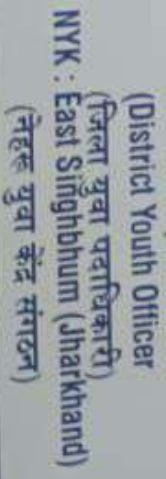 (District Youth Officer
(जिला युवा पदाधिकारी)
NYK : East Singhbhum (Jharkhand)
(नेहरु युवा केंद्र संगठन)